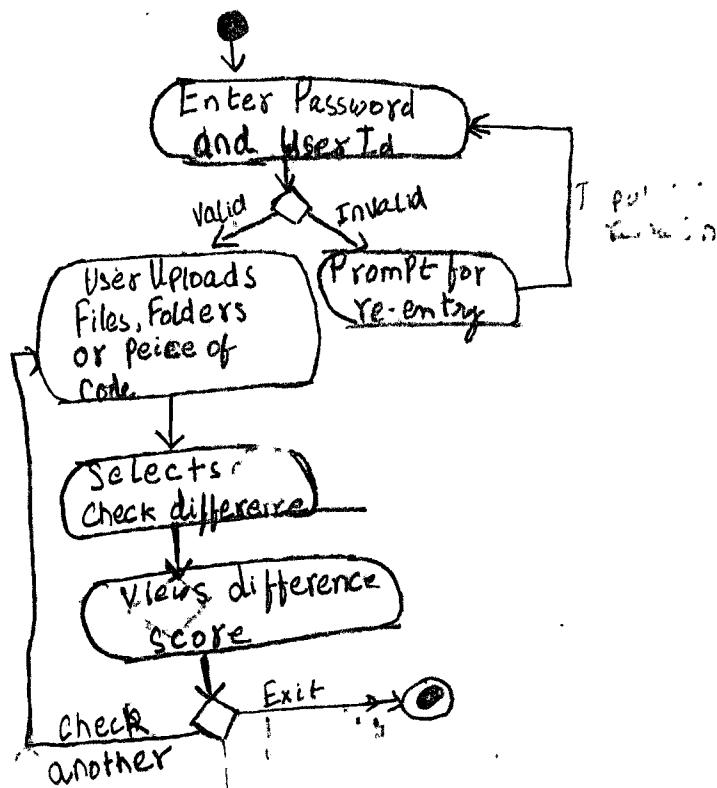 Enter Password
and User Id
Valid
Invalid
User Uploads
Files, Folders
or peice of
Code
Prompt for
re-entry
Selects
Check difference
Views difference
score
Exit
Check
another